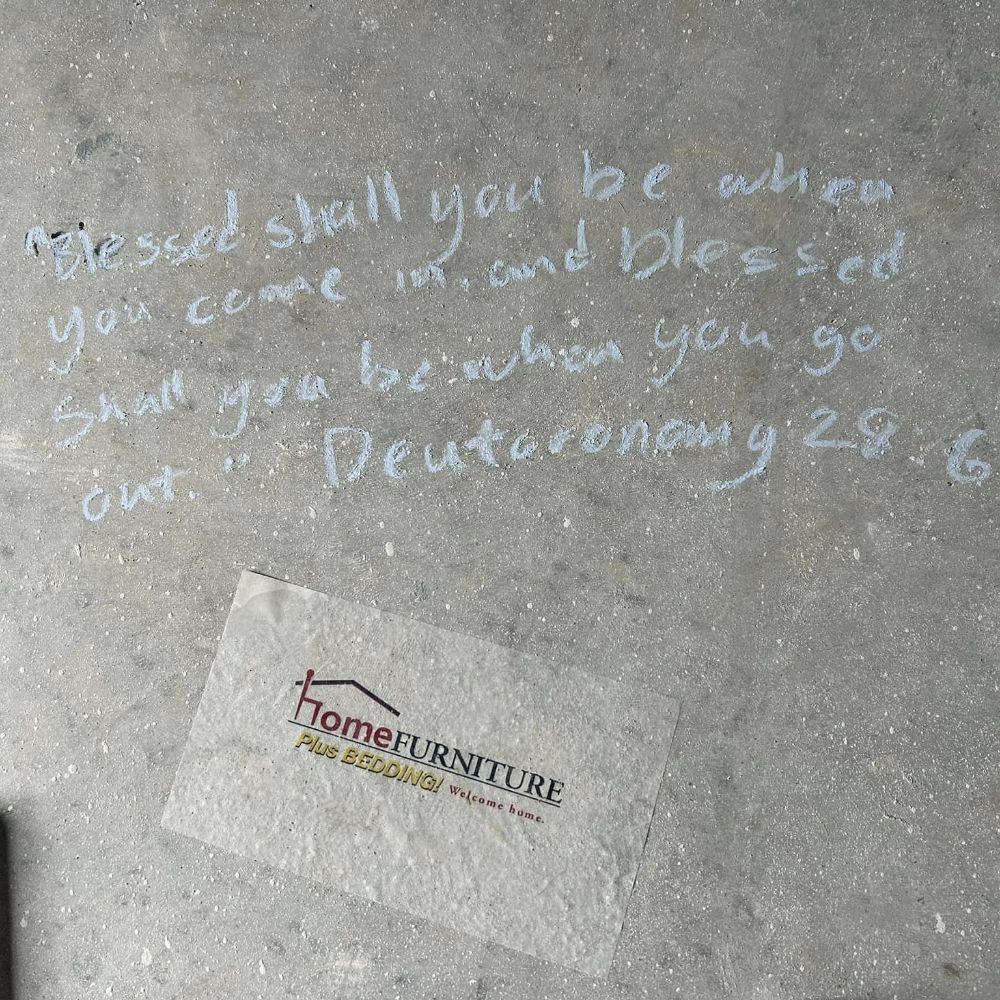 "Blessed shall you be when
you come in, and blessed
shall you be when you go
out." Deuteronomy 28:6
HomeFURNITURE
Plus BEDDING! Welcome home.